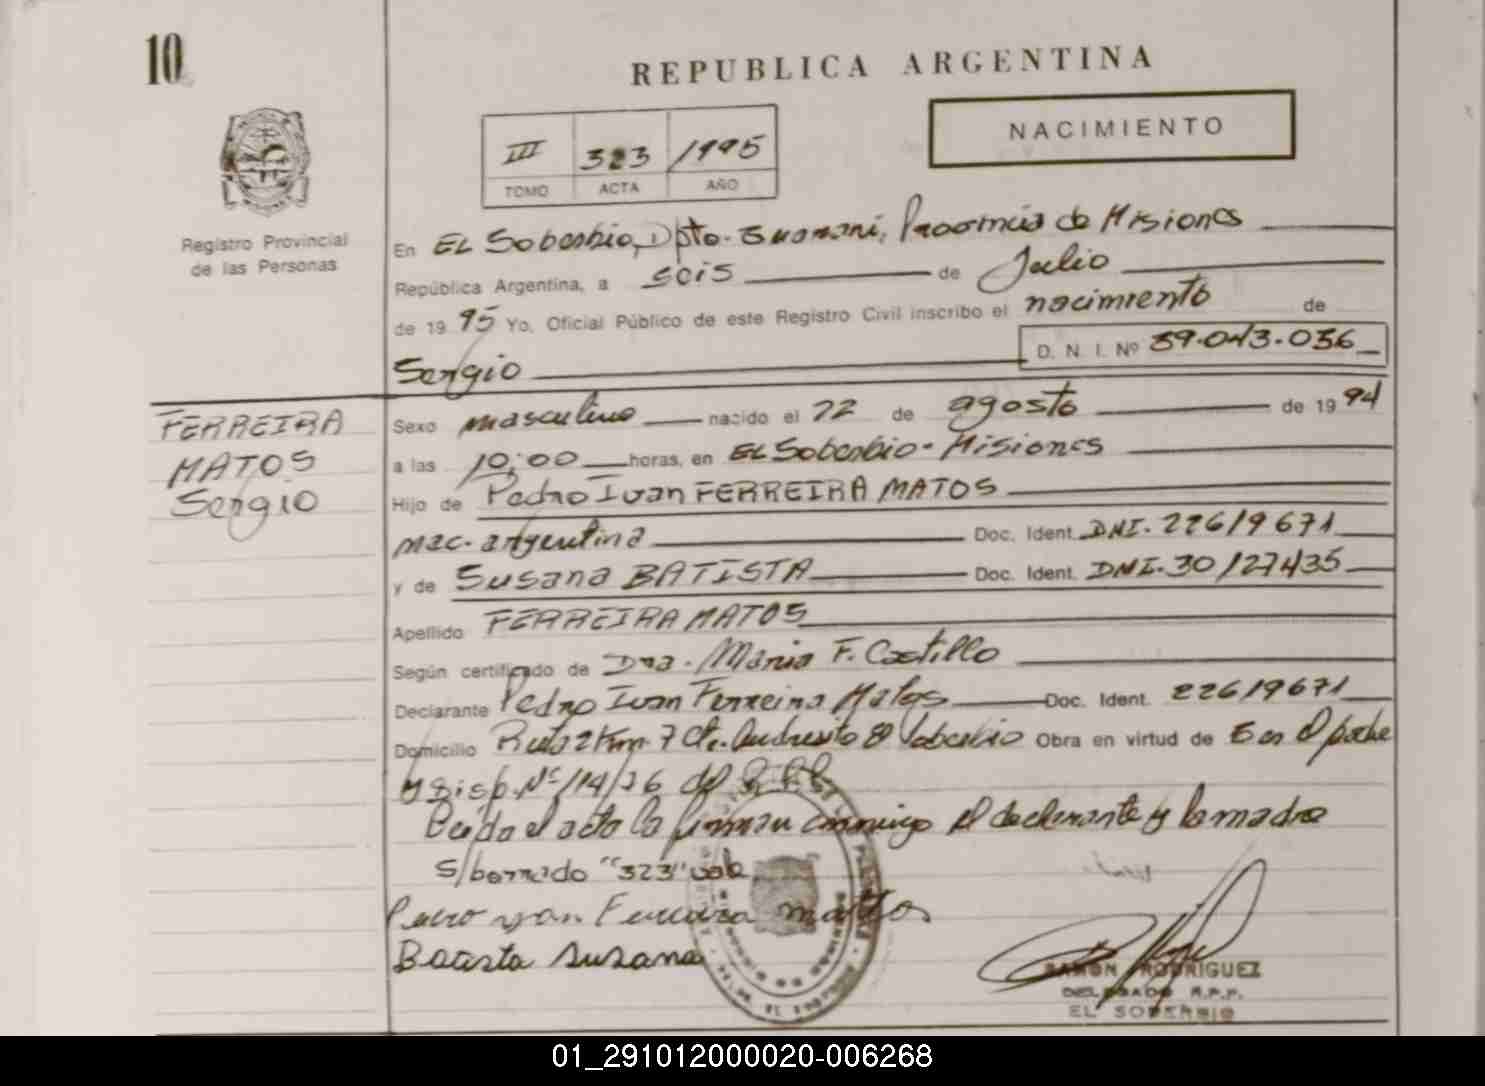 10
REPUBLICA ARGENTINA
NACIMIENTO
III 323 1995
TOMO ACTA AÑO
Registro Provincial
de las Personas
En EL Soberbio, Dpto. Guarani, Provincia de Misiones
República Argentina, a seis de Julio
de 1995 Yo, Oficial Público de este Registro Civil inscribo el nacimiento de
Sergio D. N. I. Nº 39.043.036
FERREIRA
MATOS
Sergio
Sexo masculino nacido el 22 de agosto de 1994
a las 10:00 horas, en EL Soberbio - Misiones
Hijo de Pedro Ivan FERREIRA MATOS
nac. argentina Doc. Ident. DNI. 22619671
y de Susana BATISTA Doc. Ident. DNI. 30127435
Apellido FERREIRA MATOS
Según certificado de Dra. Maria F. Castillo
Declarante Pedro Ivan Ferreira Matos Doc. Ident. 22619671
Domicilio Ruta 2 Km. 7 Andresito El Soberbio Obra en virtud de Ser el padre
y Disp. Nº 114/76 del R.P.P.
Leida el acta la firman conmigo el declarante y la madre
s/borrado "323" vale
Ferreira mattos
Batista Susana
RAMON RODRIGUEZ
DELEGADO R.P.P.
EL SOBERBIO
01_291012000020-006268